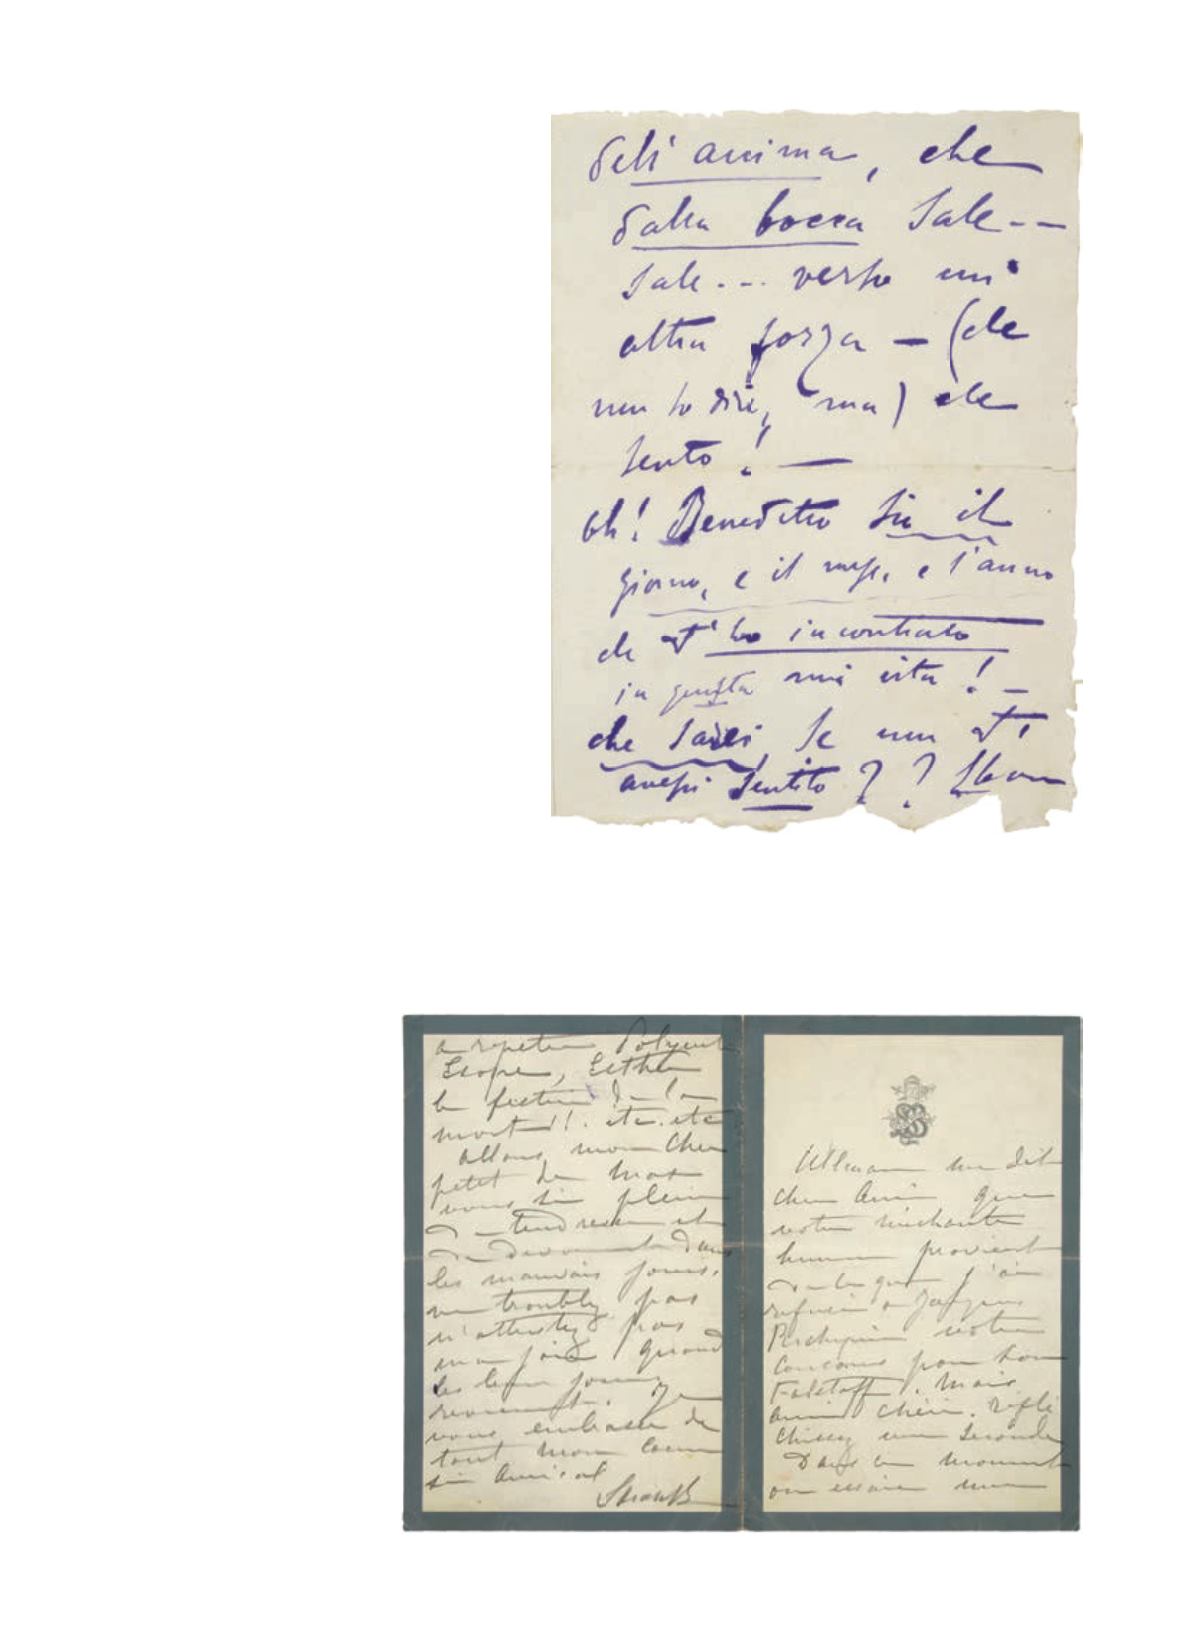 dell'anima, che
dalla bocca sale--
sale... verso un'
altra forza — (che
non so dire, ma) che
sento! —
oh! Benedetto sia il
giorno, e il mese, e l'anno
che T'ho incontrato
in questa mia vita! —
che sarei, se non T'
avessi sentito ? ?
a repeter Polyeucte
Esope, Esther
la
mort!! etc. etc
allons, mon cher
petit de Max
vous si plein
de tendresse et
de devouement dans
les mauvais jours,
ne troublez pas
n'attristez pas
ma joie quand
les beaux jours
reviennent. Je
vous embrasse de
tout mon coeur
si amical
Ullmann me dit
cher Ami, que
votre mechante
humeur provient
de ce que j'ai
refusé a Jacques
votre
concours pour son
Falstaff. Mais
ami chéri. refle
chissez une seconde
Dans ce moment
on essaie une